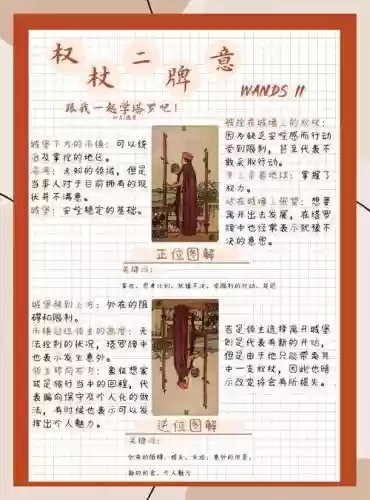 权杖二牌意
WANDS II
跟我一起学塔罗吧！
城堡下方的市镇：可以统
治及掌控的地区。
高湾：未知的领域，但是
当事人对于目前拥有的现
状并不满意。
城堡：安啦稳定的基础。
被拴在城墙上的权杖：
因为缺乏安啦感而行动
受到限制，甚至代表不
敢采取行动。
手上拿着地球：掌握了
权力。
站在城墙上张望：想要
离开出去发展，在塔罗
牌中也经常表示犹豫不
决的意思。
正位图解
关键词：
掌控、思考计划、犹豫不决、受限制的行动、延迟
城堡移到上方：外在的阻
碍和限制。
市镇超过领主的高度：无
法控制的状况，塔罗牌中
也表示发生意外。
领主移向右方：象征想要
或是临行当中的回程，代
表偏向保守及个人化的做
法，有时候也表示可以发
挥出个人魅力。
若是领主选择离开城堡
则是代表有新的开始，
但是由于他只能带走其
中一支权杖，因此也暗
示改变将会有所损失。
逆位图解
关键词：
外在的阻碍、损失、失控、意外的惊喜、
新的机会、个人魅力